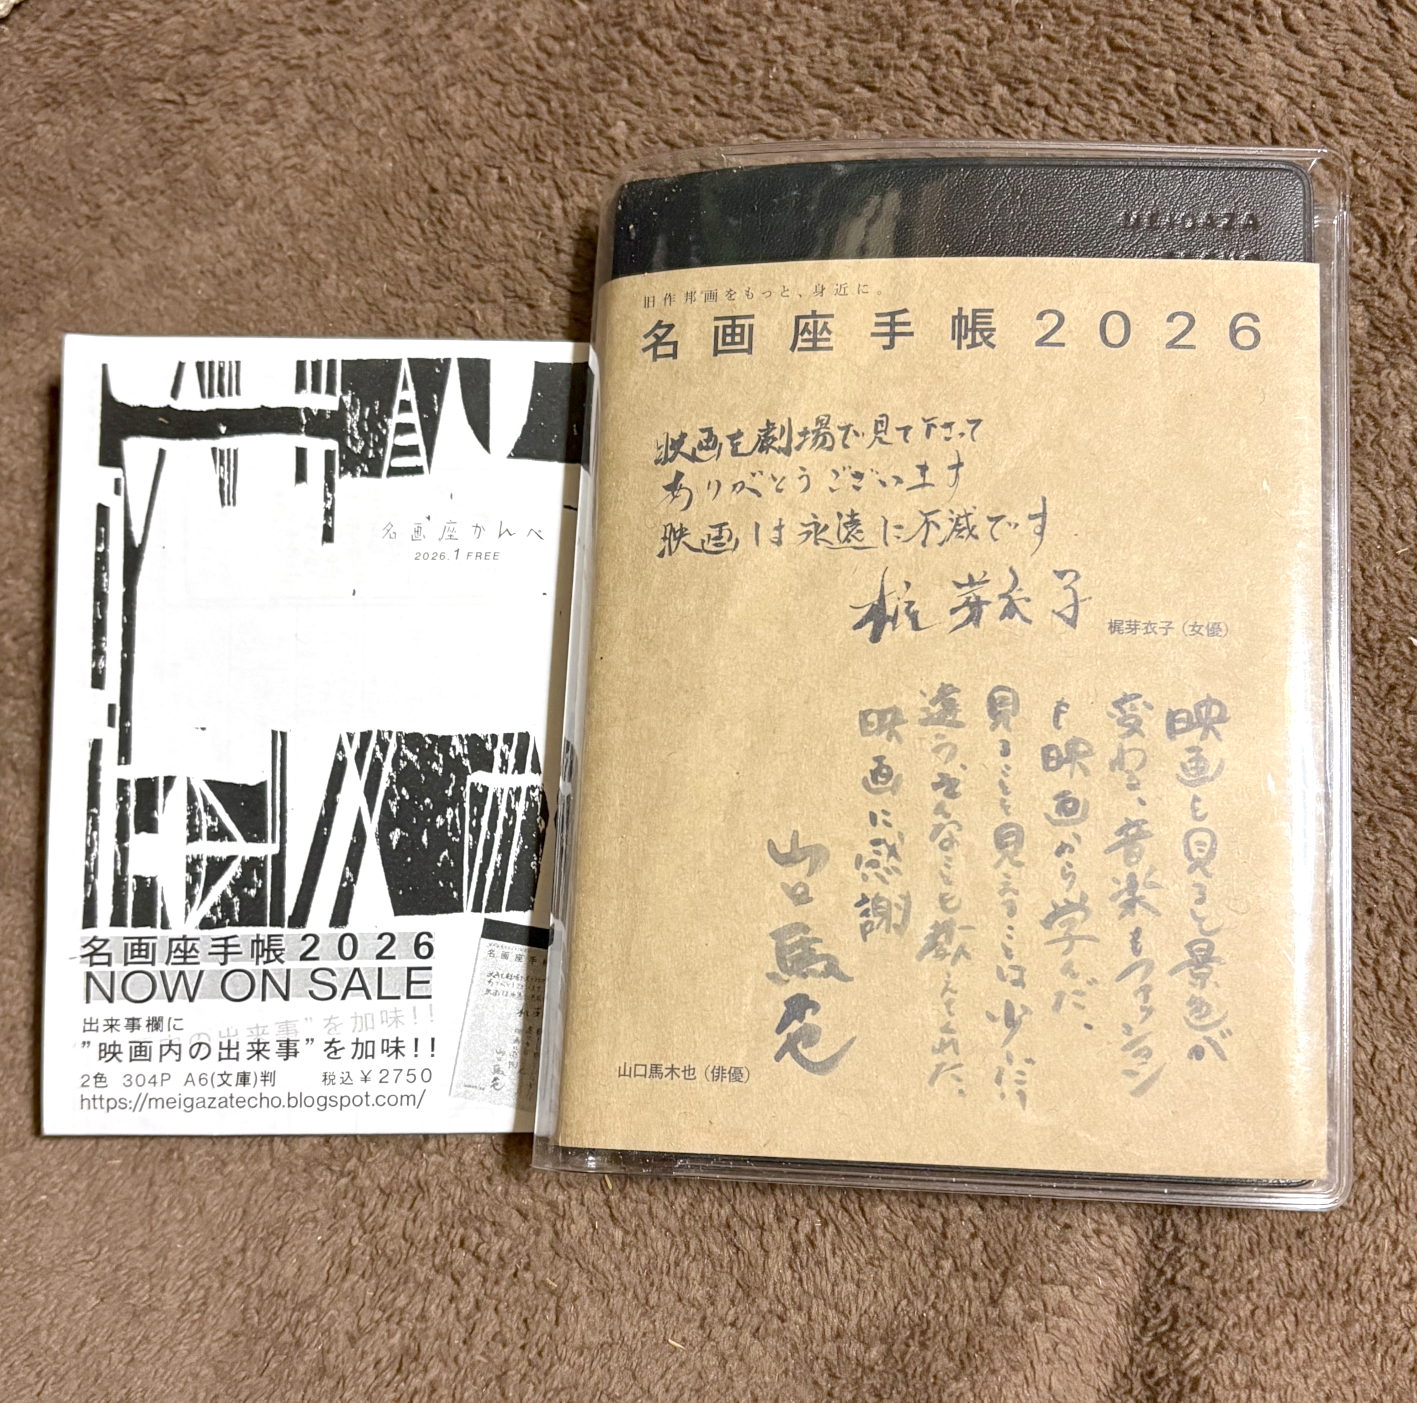 名画座かんぺ
2026.1 FREE
名画座手帳2026
NOW ON SALE
出来事欄に
"映画内の出来事"を加味!!
2色 304P A6(文庫)判 税込¥2750
https://meigazatecho.blogspot.com/
MEIGAZA
旧作邦画をもっと、身近に。
名画座手帳2026
映画を劇場で見て下さって
ありがとうございます
映画は永遠に不滅です
梶芽衣子
梶芽衣子(女優)
映画を見ると景色が
変わる、音楽もファッション
も映画から学んだ、
見ることと見えることは少しだけ
違う、そんなことも教えてくれた。
映画に感謝
山口馬木也
山口馬木也(俳優)